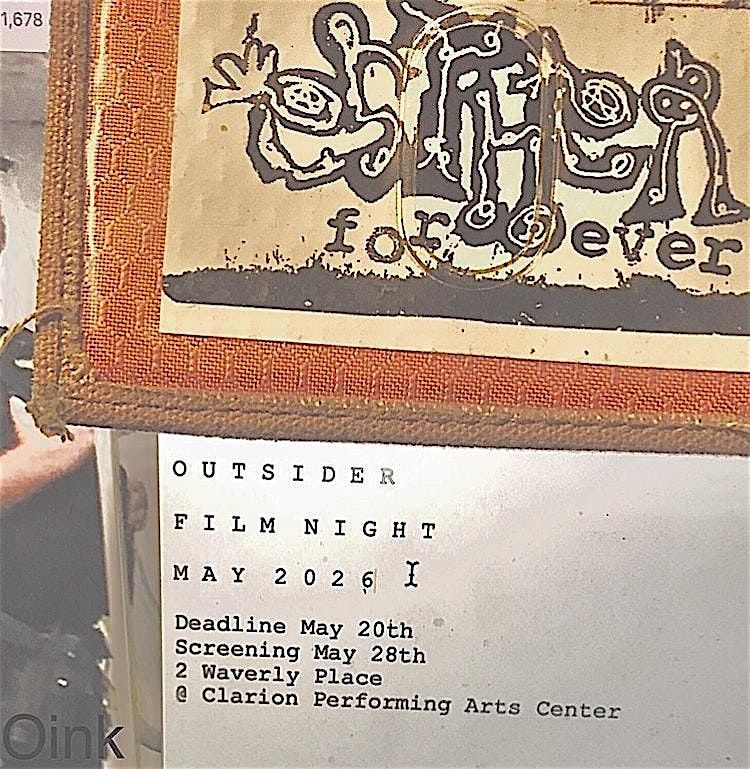 1,678
for ever
OUTSIDER
FILM NIGHT
MAY 2026
Deadline May 20th
Screening May 28th
2 Waverly Place
@ Clarion Performing Arts Center
Oink